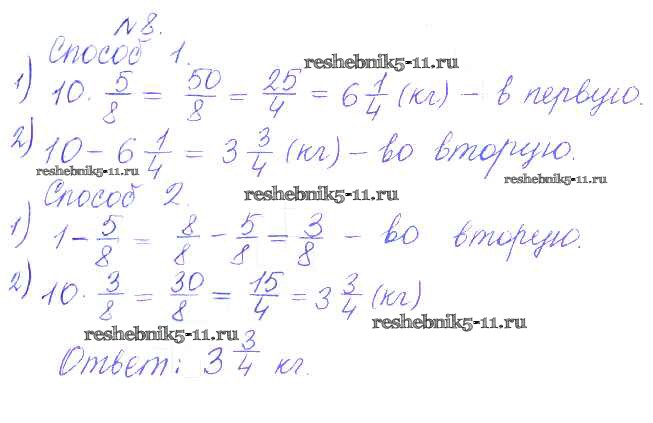 №8.
Способ 1. reshebnik5-11.ru
1) 10 · 5/8 = 50/8 = 25/4 = 6 1/4 (кг) – в первую.
2) 10 – 6 1/4 = 3 3/4 (кг) – во вторую.
reshebnik5-11.ru reshebnik5-11.ru
Способ 2. reshebnik5-11.ru
1) 1 – 5/8 = 8/8 – 5/8 = 3/8 – во вторую.
2) 10 · 3/8 = 30/8 = 15/4 = 3 3/4 (кг)
reshebnik5-11.ru reshebnik5-11.ru
Ответ: 3 3/4 кг.